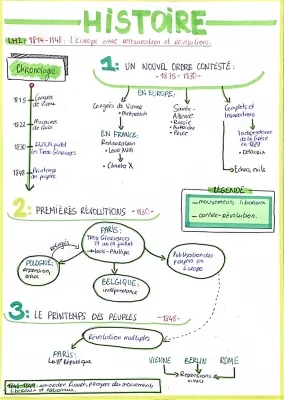 HISTOIRE
LH2: 1814-1848: L'Europe entre restauration et révolutions.
Chronologie
1815
Congrès
de Vienne
1822
Massacres
de Chio
1830
27, 28, 29 juillet
les Trois Glorieuses
1848
Printemps
des peuples
1: UN NOUVEL ORDRE CONTESTÉ:
-1815-1830-
EN EUROPE:
Congrès de Vienne
• Metternich
EN FRANCE:
Restauration
• Louis XVIII
• Charles X
Sainte-
Alliance
• Russie
• Autriche
• Prusse
Complots et
Insurrections
Indépendance
de la Grèce
en 1829
• Delacroix
Échecs, exils
LÉGENDE:
mouvements libéraux
contre-révolution.
2: PREMIÈRES RÉVOLUTIONS -1830-
PARIS:
Trois Glorieuses
27 au 29 juillet
• Louis-Philippe
exemple
POLOGNE:
répression,
BELGIQUE:
indépendance
peuples en
Europe
3: LE PRINTEMPS DES PEUPLES
-1848-
Révolutions multiples
PARIS:
La IIe République
VIENNE BERLIN ROME
Répressions
1848-1849:
libéraux et nationaux.